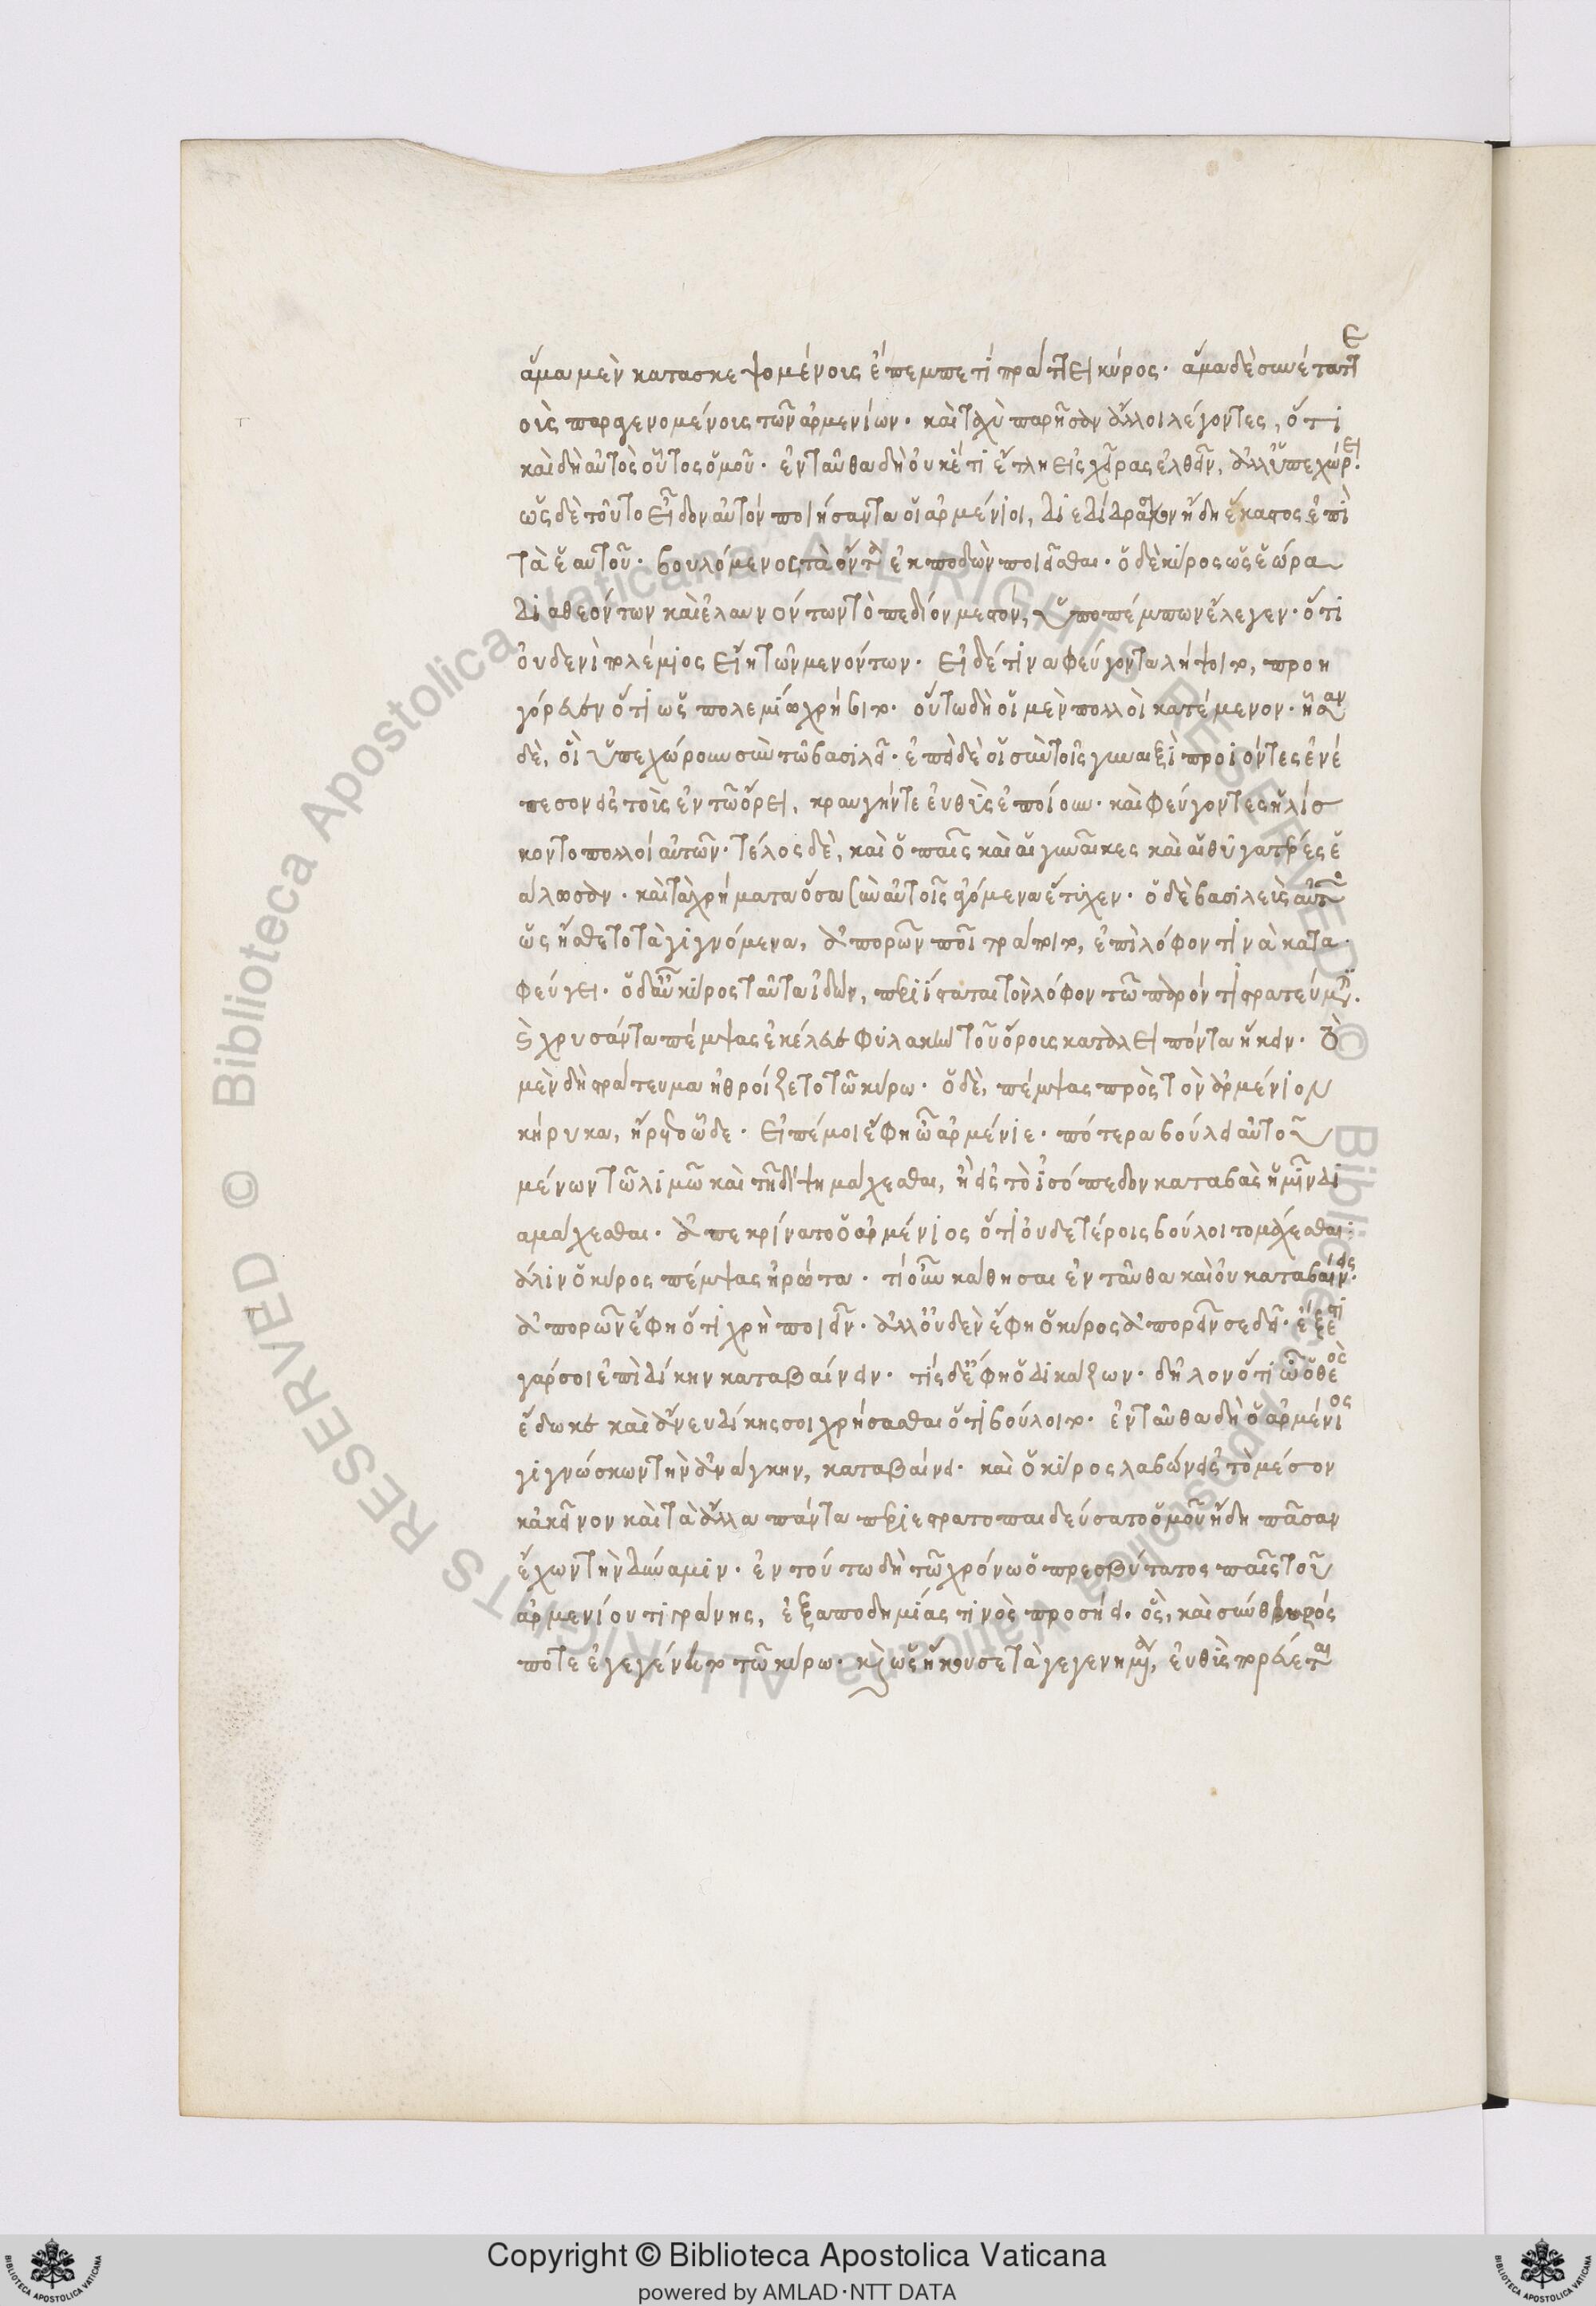 ἅμα μὲν κατασκεψομένοις ἔπεμπε τί πράττει κύρος· ἅμα δὲ συνέταττε
οἷς παραγενομένοις τῶν ἀρμενίων· καὶ ταχὺ παρῆσαν ἄλλοι λέγοντες, ὅτι
καὶ δὴ αὐτὸς οὗτος ὁμοῦ· ἐνταῦθα δὴ οὐκέτι ἔτλη εἰς χεῖρας ἐλθεῖν, ἀλλ' ὑπεχώρει·
ὡς δὲ τοῦτο εἶδον αὐτόν ποιήσαντα οἱ ἀρμένιοι, διεδίδρασκον ἤδη ἕκαστος ἐπὶ
τὰ ἑαυτοῦ· βουλόμενος τὰ ὄντα ἐκποδὼν ποιεῖσθαι· ὁ δὲ κύρος ὡς ἑώρα
διαθεόντων καὶ ἐλαυνόντων τὸ πεδίον μεστόν, ὑποπέμπων ἔλεγεν· ὅτι
οὐδενὶ πολέμιος εἴη τῶν μενόντων· εἰ δέ τινα φεύγοντα λήψοιτο, προη
γόρευεν ὅτι ὡς πολεμίῳ χρήσοιτο· οὕτω δὴ οἱ μὲν πολλοὶ κατέμενον· ἦσαν
δὲ, οἳ ὑπεχώρουν σὺν τῷ βασιλεῖ· ἐπεὶ δὲ οἱ σὺν τοῖς γυναιξὶ προιόντες ἐνέ
πεσον εἰς τοὺς ἐν τῷ ὄρει, κραυγήν τε εὐθὺς ἐποίουν· καὶ φεύγοντες ἡλίσ
κοντο πολλοί αὐτῶν· τέλος δὲ, καὶ ὁ παῖς καὶ αἱ γυναῖκες καὶ αἱ θυγατέρες ἑ
άλωσαν· καὶ τὰ χρήματα ὅσα σὺν αὐτοῖς ἀγόμενα ἔτυχεν· ὁ δὲ βασιλεὺς αὐτῶν
ὡς ᾔσθετο τὰ γιγνόμενα, ἀπορῶν ποῖ τράποιτο, ἐπὶ λόφον τινὰ κατα
φεύγει· ὁ δ' αὖ κύρος ταῦτα ἰδών, περιίσταται τὸν λόφον τῷ παρόντι στρατεύματι.
καὶ χρυσάνταν πέμψας ἐκέλευε φυλακὴν τοῦ ὄρους καταλειπόντα ἥκειν· τὸ
μὲν δὴ στράτευμα ἠθροίζετο τῷ κύρω· ὁ δὲ, πέμψας πρὸς τὸν ἀρμένιον
κήρυκα, ἤρετο ὧδε· εἰπέ μοι ἔφη ὦ ἀρμένιε· πότερα βούλει αὐτοῦ
μένων τῷ λιμῷ καὶ τῇ δίψῃ μάχεσθαι, ἢ εἰς τὸ ἰσόπεδον καταβὰς ἡμῖν δι
αμάχεσθαι· ἀπεκρίνατο ὁ ἀρμένιος ὅτι οὐδετέροις βούλοιτο μάχεσθαι·
πάλιν ὁ κύρος πέμψας ἠρώτα· τί οὖν κάθησαι ἐνταῦθα καὶ οὐ καταβαίνεις·
ἀπορῶν ἔφη ὅτι χρὴ ποιεῖν· ἀλλ' οὐδὲν ἔφη ὁ κύρος ἀπορεῖν σε δεῖ· ἔξεστι
γάρ σοι ἐπὶ δίκην καταβαίνειν· τίς δ' ἔφη ὁ δικάζων· δῆλον ὅτι ᾧ ὁ θεὸς
ἔδωκε καὶ ἄνευ δίκης σοι χρήσασθαι ὅτι βούλοιτο· ἐνταῦθα δὴ ὁ ἀρμένιος
γιγνώσκων τὴν ἀνάγκην, καταβαίνει· καὶ ὁ κύρος λαβών εἰς τὸ μέσον
κἀκεῖνον καὶ τὰ ἄλλα πάντα περιεστρατοπαιδεύσατο ὁμοῦ ἤδη πᾶσαν
ἔχων τὴν δύναμιν· ἐν τούτῳ δὴ τῷ χρόνῳ ὁ πρεσβύτατος παῖς τοῦ
ἀρμενίου τιγράνης, ἐξ ἀποδημίας τινὸς προσῄει· ὃς, καὶ σύνθηρός
ποτε ἐγεγένητο τῷ κύρω· καὶ ὡς ἤκουσε τὰ γεγενημένα, εὐθὺς πορεύεται